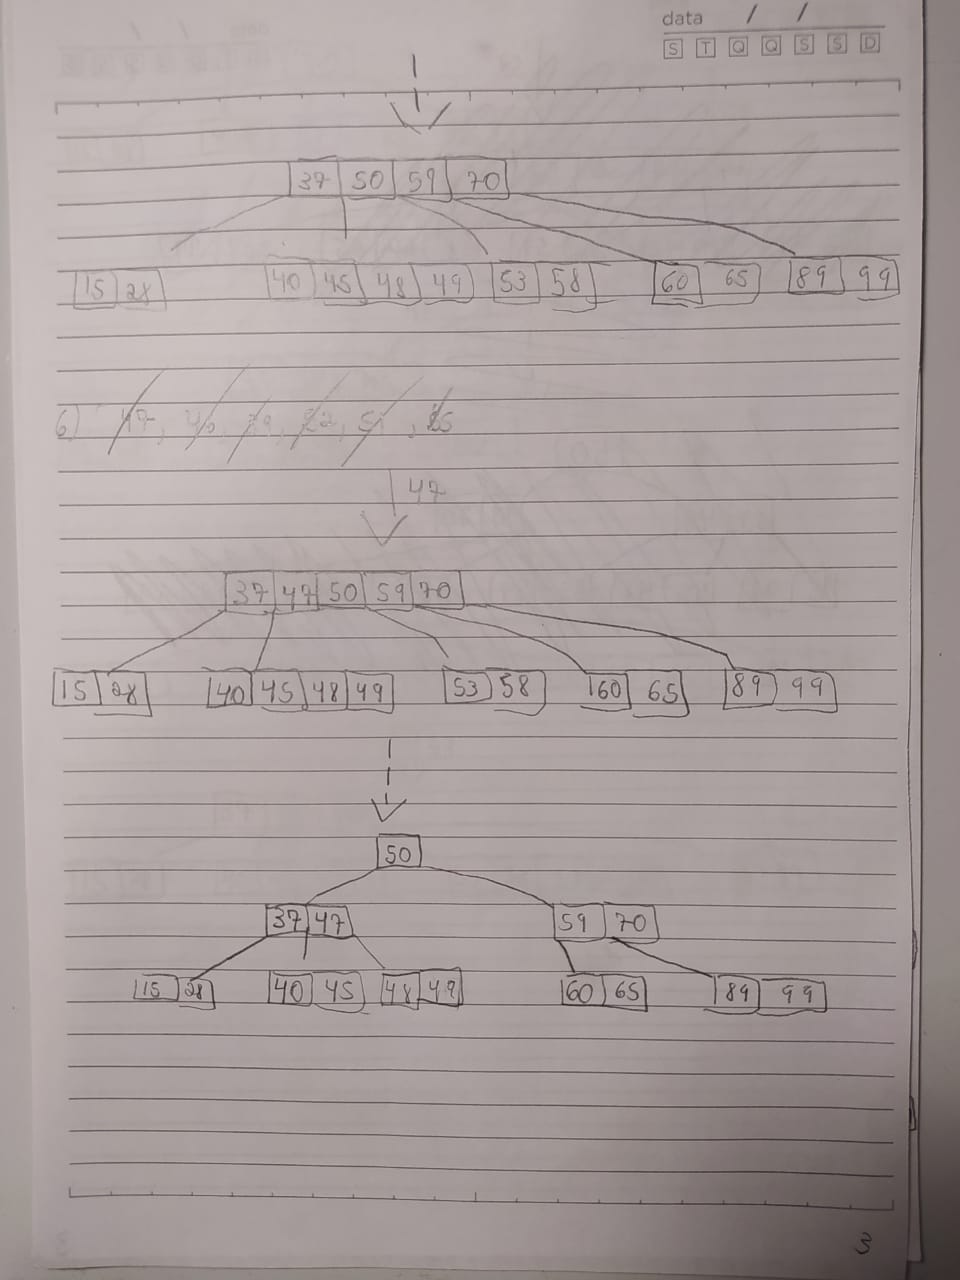 data / /
S T Q Q S S D
37 50 59 70
15 28 40 45 48 49 53 58 60 65 89 99
6) 47, 46, 79, 22, 51, 25
47
37 47 50 59 70
15 28 40 45 48 49 53 58 60 65 89 99
50
37 47 59 70
15 28 40 45 48 49 60 65 89 99
3